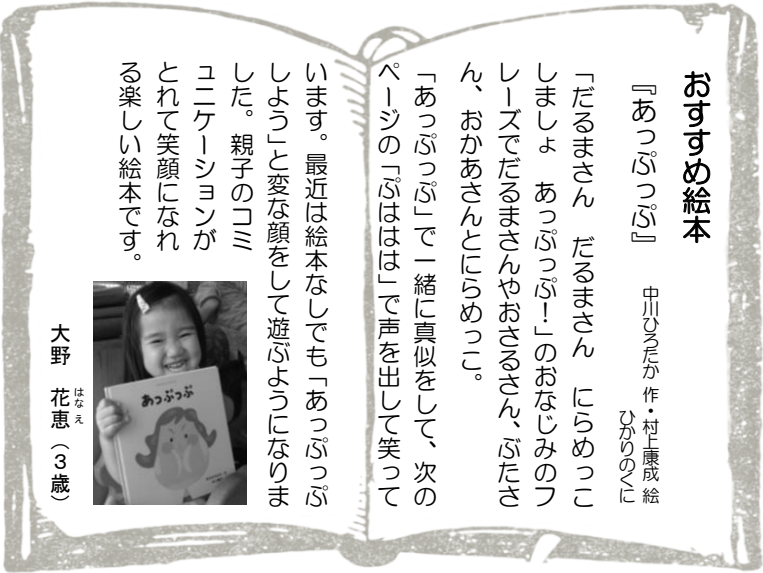 おすすめ絵本
『あっぷっぷ』
中川ひろたか 作・村上康成 絵
ひかりのくに
「だるまさん　だるまさん　にらめっこ
しましょ　あっぷっぷ！」のおなじみのフ
レーズでだるまさんやおさるさん、ぶたさ
ん、おかあさんとにらめっこ。
「あっぷっぷ」で一緒に真似をして、次の
ページの「ぷははは」で声を出して笑って
います。最近は絵本なしでも「あっぷっぷ
しよう」と変な顔をして遊ぶようになりま
した。親子のコミ
ュニケーションが
とれて笑顔になれ
る楽しい絵本です。
あっぷっぷ
大野　花恵（３歳）
はな え